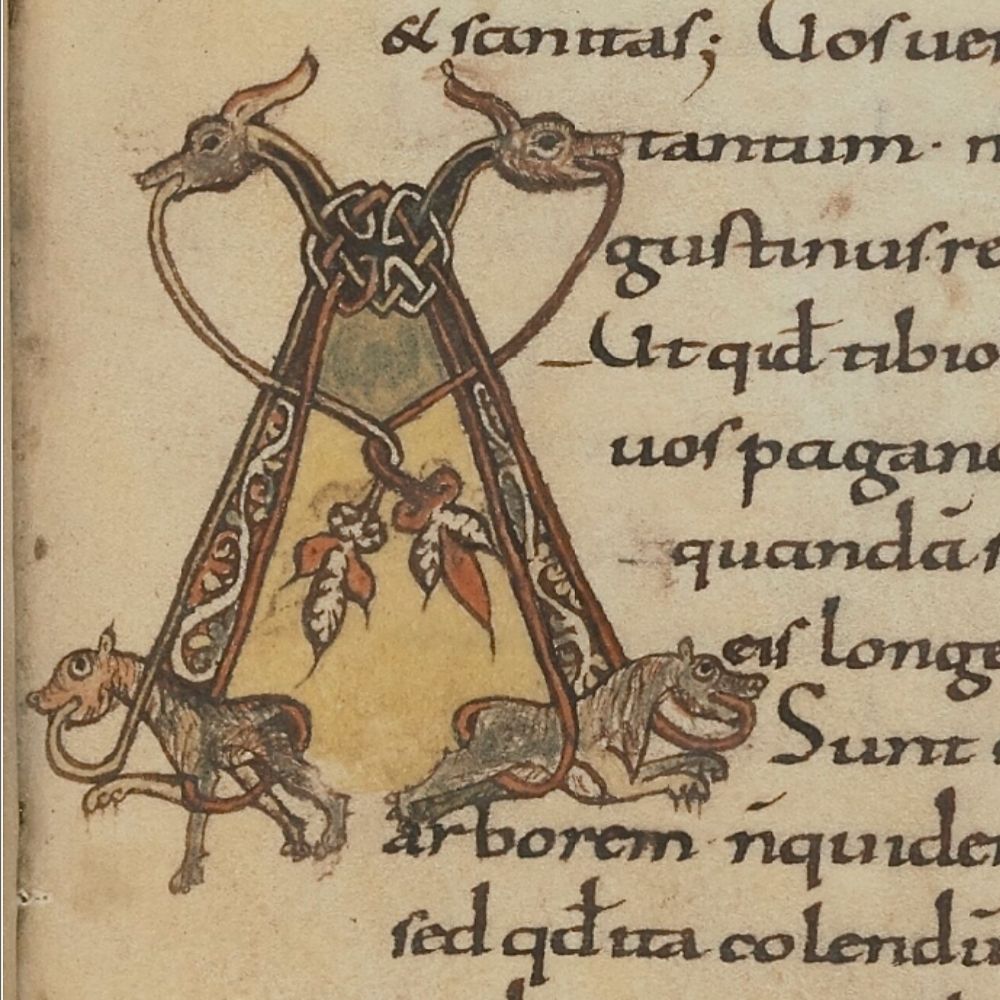 & sanitas; Uos uer
A tantum · n
gustinus re
Ut qid tibi o
uos pagano
quandā s
eis longe
Sunt
arborem n̄ quider
sed qđ ita colendū